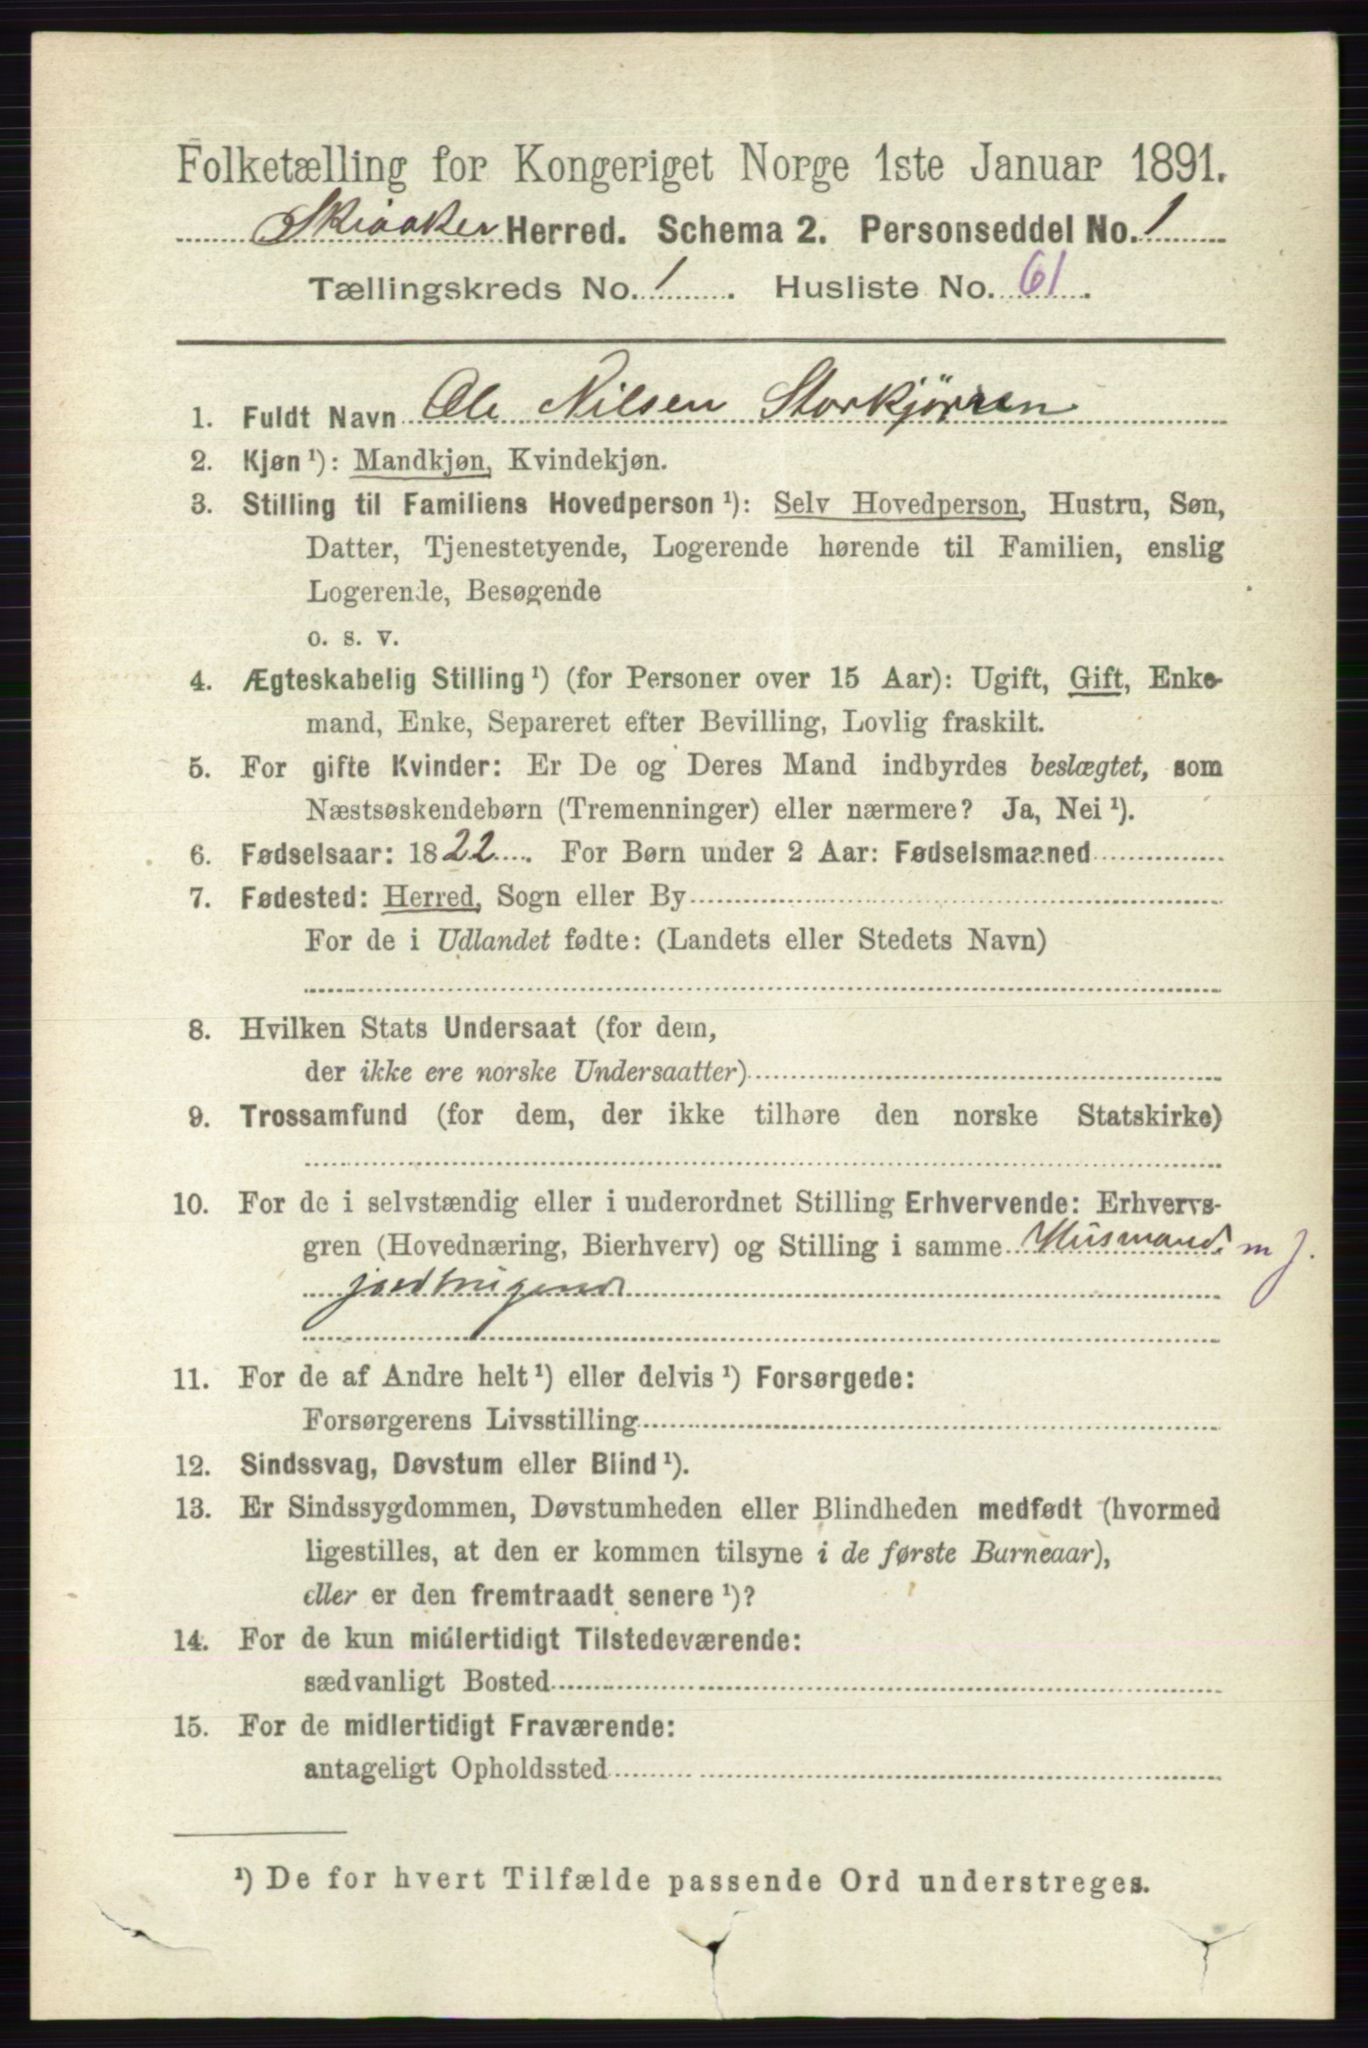 Folketælling for Kongeriget Norge 1ste Januar 1891.
Skiaaker Herred. Schema 2. Personseddel No. 1
Tællingskreds No. 1. Husliste No. 61.
1. Fuldt Navn Ole Nilsen Storkjørren
2. Kjøn ¹): Mandkjøn, Kvindekjøn.
3. Stilling til Familiens Hovedperson ¹): Selv Hovedperson, Hustru, Søn,
Datter, Tjenestetyende, Logerende hørende til Familien, enslig
Logerende, Besøgende
o. s. v.
4. Ægteskabelig Stilling ¹) (for Personer over 15 Aar): Ugift, Gift, Enke-
mand, Enke, Separeret efter Bevilling, Lovlig fraskilt.
5. For gifte Kvinder: Er De og Deres Mand indbyrdes beslægtet, som
Næstsøskendebørn (Tremenninger) eller nærmere? Ja, Nei ¹).
6. Fødselsaar: 1822. For Børn under 2 Aar: Fødselsmaaned
7. Fødested: Herred, Sogn eller By
For de i Udlandet fødte: (Landets eller Stedets Navn)
8. Hvilken Stats Undersaat (for dem,
der ikke ere norske Undersaatter)
9. Trossamfund (for dem, der ikke tilhøre den norske Statskirke)
10. For de i selvstændig eller i underordnet Stilling Erhvervende: Erhvervs-
gren (Hovednæring, Bierhverv) og Stilling i samme Husmand. m j.
jordbrugende
11. For de af Andre helt ¹) eller delvis ¹) Forsørgede:
Forsørgerens Livsstilling
12. Sindssvag, Døvstum eller Blind ¹).
13. Er Sindssygdommen, Døvstumheden eller Blindheden medfødt (hvormed
ligestilles, at den er kommen tilsyne i de første Barneaar),
eller er den fremtraadt senere ¹)?
14. For de kun midlertidigt Tilstedeværende:
sædvanligt Bosted
15. For de midlertidigt Fraværende:
antageligt Opholdssted
¹) De for hvert Tilfælde passende Ord understreges.